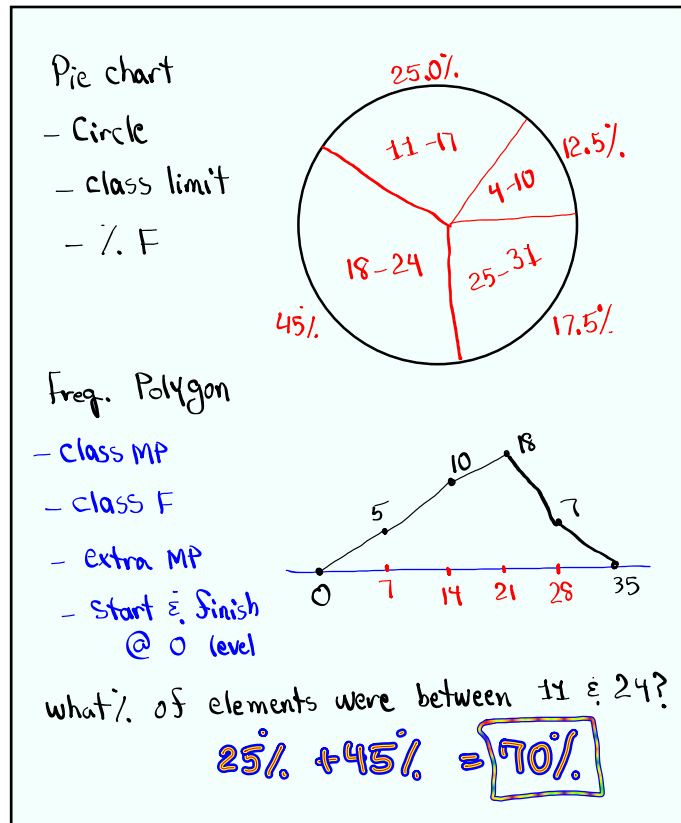 Pie chart
- Circle
- class limit
- % F
25.0%
11-17
12.5%
4-10
18-24
25-31
45%
17.5%
Freq. Polygon
- class MP
- class F
- extra MP
- Start & finish
@ 0 level
18
10
5
7
0
7
14
21
28
35
what % of elements were between 11 & 24?
25% + 45% = 70%